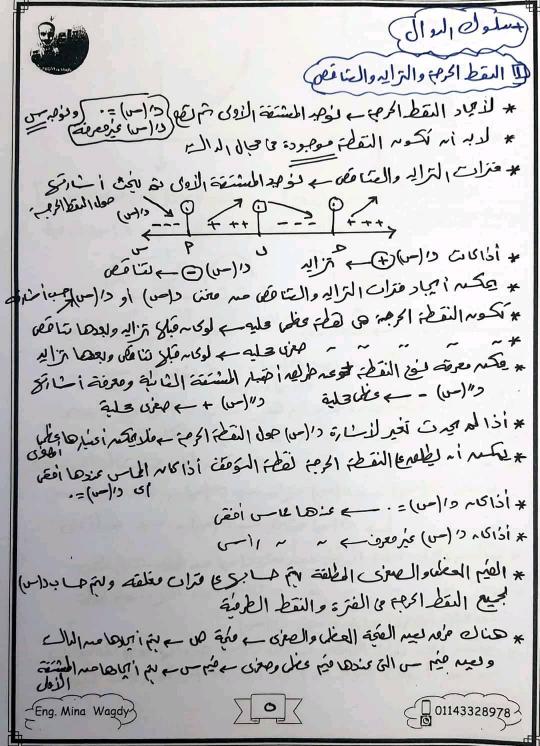 * سلوك الدوال
١ النقط الحرجة والتزايد والتناقص
* لأيجاد النقط الحرجة ← نوجد المشتقة الأولى ثم نضع د/(س) = ٠ ونوجد س
د/(س) غير معرفة
* لابد أن تكون النقطة موجودة فى مجال الدالة
* فترات التزايد والتناقص ← نوجد المشتقة الأولى ثم نبحث أشارتها
حول النقط الحرجة
د/(س) --- +++ --- +++
س
* أذا كانت د/(س) + ← تزايد د/(س) - ← تناقص
* يمكن أيجاد فترات التزايد والتناقص من منحنى د(س) أو د/(س) حسب أشارته
* تكون النقطة الحرجة هى نقطة عظمى محلية ← لو كان قبلها تزايد وبعدها تناقص
" " " " صغرى محلية ← لو كان قبلها تناقص وبعدها تزايد
* يمكن معرفة نوع النقطة عن طريق أختبار المشتقة الثانية ومعرفة أشارتها
د//(س) - ← عظمى محلية د//(س) + ← صغرى محلية
* أذا لم يحدث تغير لأشارة د/(س) حول النقطة الحرجة ← فلا يمكن أعتبارها عظمى
أو صغرى
* يمكن أن يطلق على النقطة الحرجة نقطة التوقف أذا كان المماس عندها أفقى
أى د/(س) = ٠
* أذا كان د/(س) = ٠ ← عندها مماس أفقى
* أذا كان د/(س) غير معرف ← " " رأسى
* القيم العظمى والصغرى المطلقة يتم حسابها فى فترات مغلقة ويتم حساب د(س)
لجميع النقط الحرجة فى الفترة والنقط الطرفية
* هناك فرق بين القيمة العظمى والصغرى ← قيمة ص ← يتم أيجادها من الدالة
وبين قيم س التى عندها قيم عظمى وصغرى ← قيم س ← يتم أيجادها من المشتقة
الأولى
Eng. Mina Wagdy
٥
01143328978